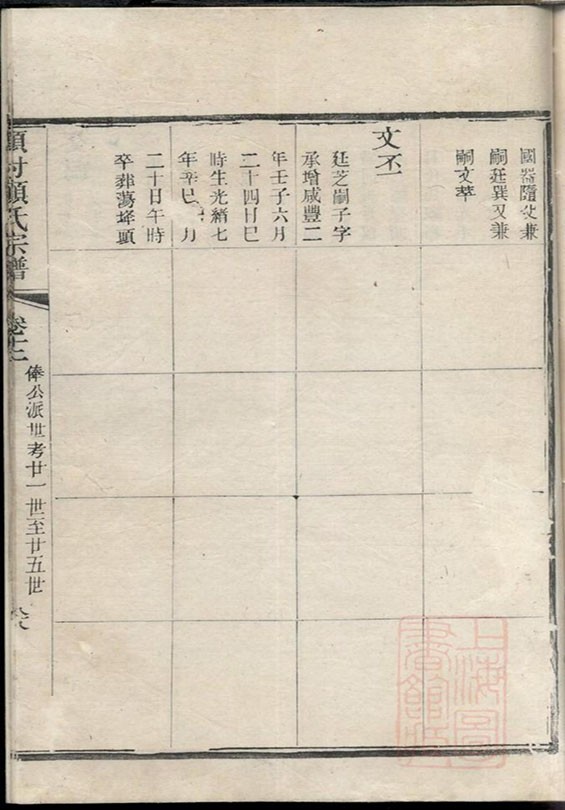 國器隨父兼
嗣廷巽又兼
嗣文萃
文丕
廷芝嗣子字
承增咸豐二
年壬子六月
二十四日巳
時生光緒七
年辛巳 月
二十日午時
卒葬蕩埄頭
顧氏宗譜
卷十二
俸公派世考廿一世至廿五世
上海圖書館藏